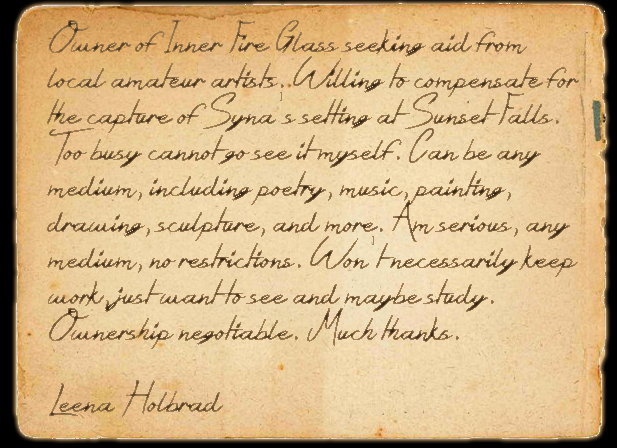 Owner of Inner Fire Glass seeking aid from
local amateur artists. Willing to compensate for
the capture of Syna's setting at Sunset Falls.
Too busy cannot go see it myself. Can be any
medium, including poetry, music, painting,
drawing, sculpture, and more. Am serious, any
medium, no restrictions. Won't necessarily keep
work, just want to see and maybe study.
Ownership negotiable. Much thanks.
Leena Holbrad